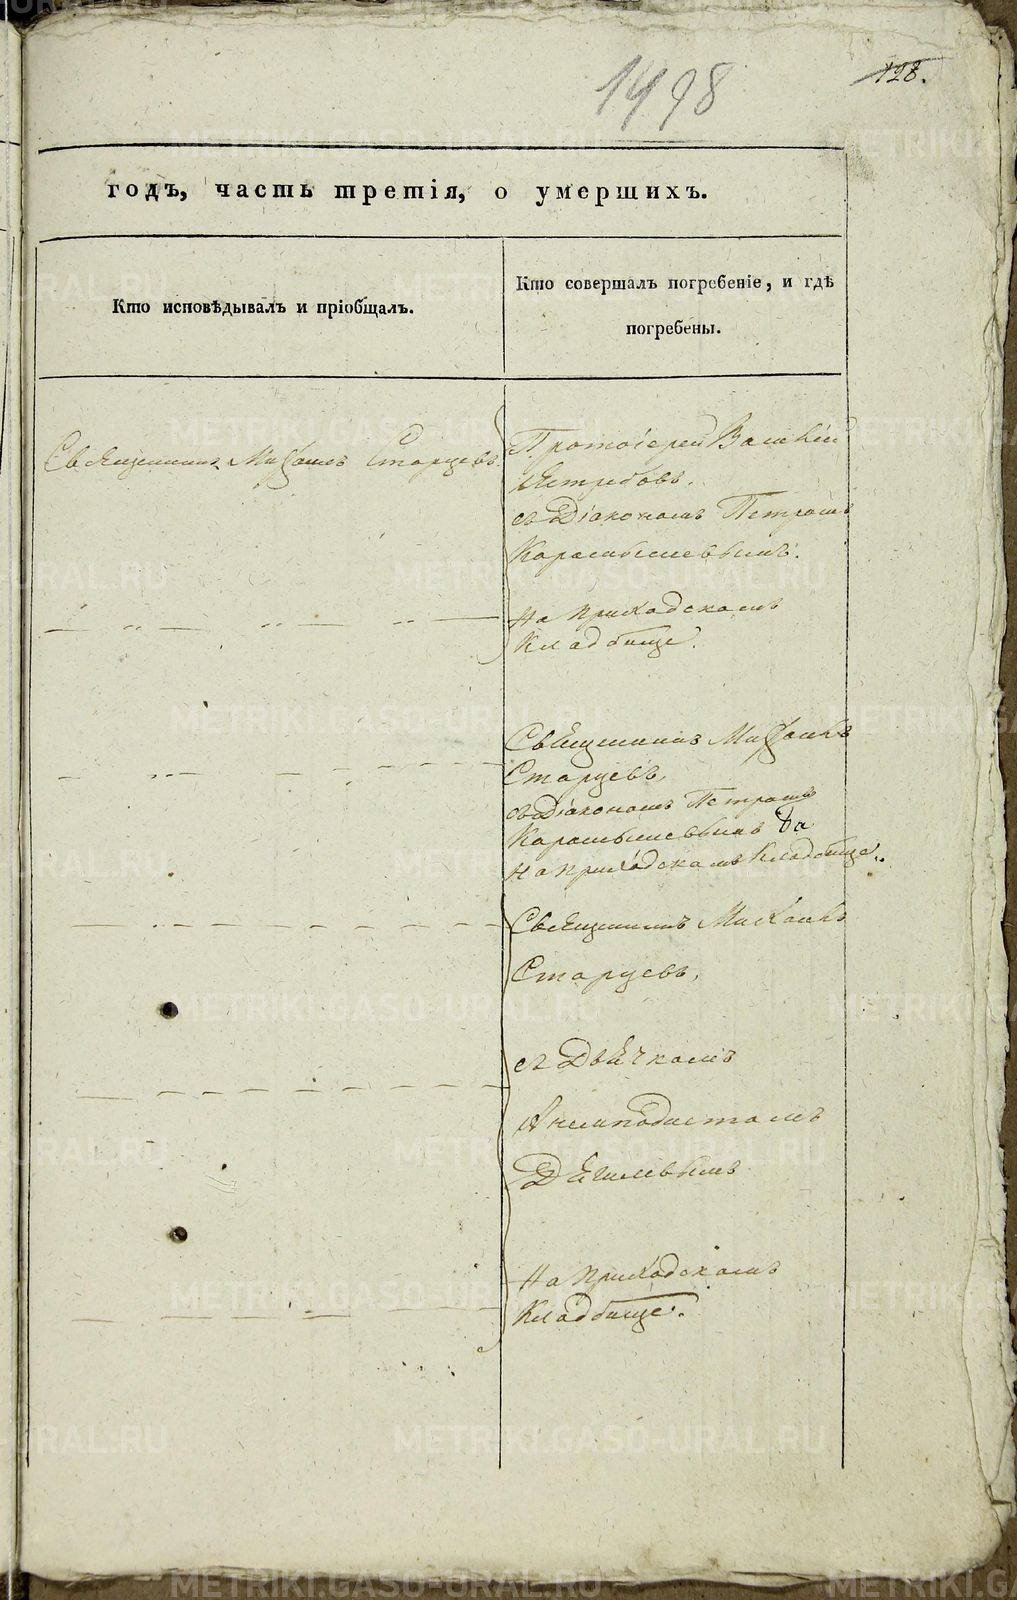 1498
128.
годъ, часть третія, о умершихъ.
Кто исповѣдывалъ и пріобщалъ.
Кто совершалъ погребеніе, и гдѣ
погребены.
Священникъ Михаилъ Старцевъ
Протоіерей Василій
Ястребовъ.
съ Діакономъ Петромъ
Карамышевымъ.
На приходскомъ
Кладбище.
Священникъ Михаилъ
Старцевъ,
съ Діакономъ Петромъ
Карамышевымъ
На приходскомъ кладбище.
Священникъ Михаилъ
Старцевъ,
съ Дьячкомъ
Анемподистомъ
Дягилевымъ
На приходскомъ
Кладбище.
METRIKI.GASO-URAL.RU